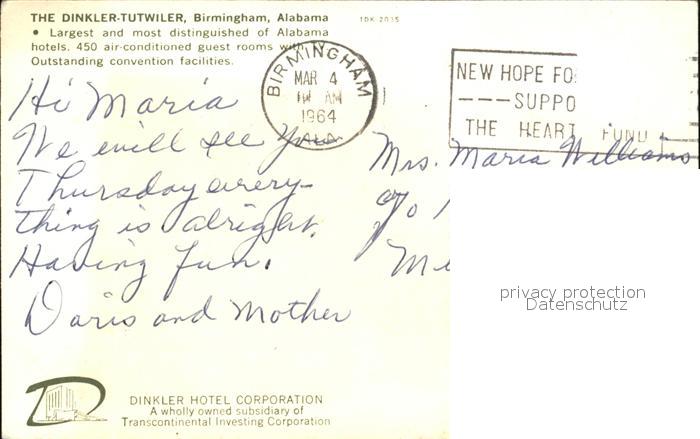 THE DINKLER-TUTWILER, Birmingham, Alabama
• Largest and most distinguished of Alabama
hotels. 450 air-conditioned guest rooms with
Outstanding convention facilities.
1DK 2035
BIRMINGHAM
MAR 4
AM
1964
ALA.
NEW HOPE FO
---SUPPO
THE HEART FUND
Hi Maria
We will see you
Thursday every-
thing is alright.
Having fun.
Doris and Mother
Mrs. Maria Williams
privacy protection
Datenschutz
DINKLER HOTEL CORPORATION
A wholly owned subsidiary of
Transcontinental Investing Corporation